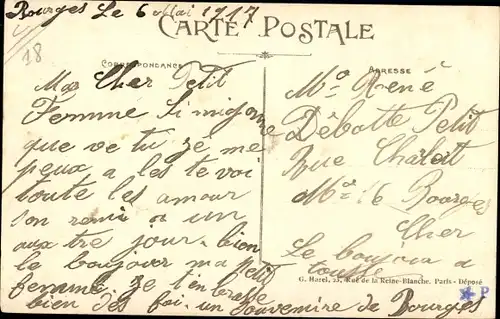 Bourges Le 6 Mai 1917
CARTE POSTALE
18
CORRESPONDANCE
Ma Cher Petit
Femme Si mignone
que ve tu ze me
peux a les te voi
toute les amour
son remis a un
aux tre jour bien
le boujour ma Petit
femme ze t'enbrasse
bien des foi un Souvemire de Bourges
ADRESSE
Ma René
Débotte Petit
Rue Charlet
Ma 16 Bourges
Cher
Le boujour a
toutte
G. Harel, 23, Rue de la Reine-Blanche, Paris - Déposé
P